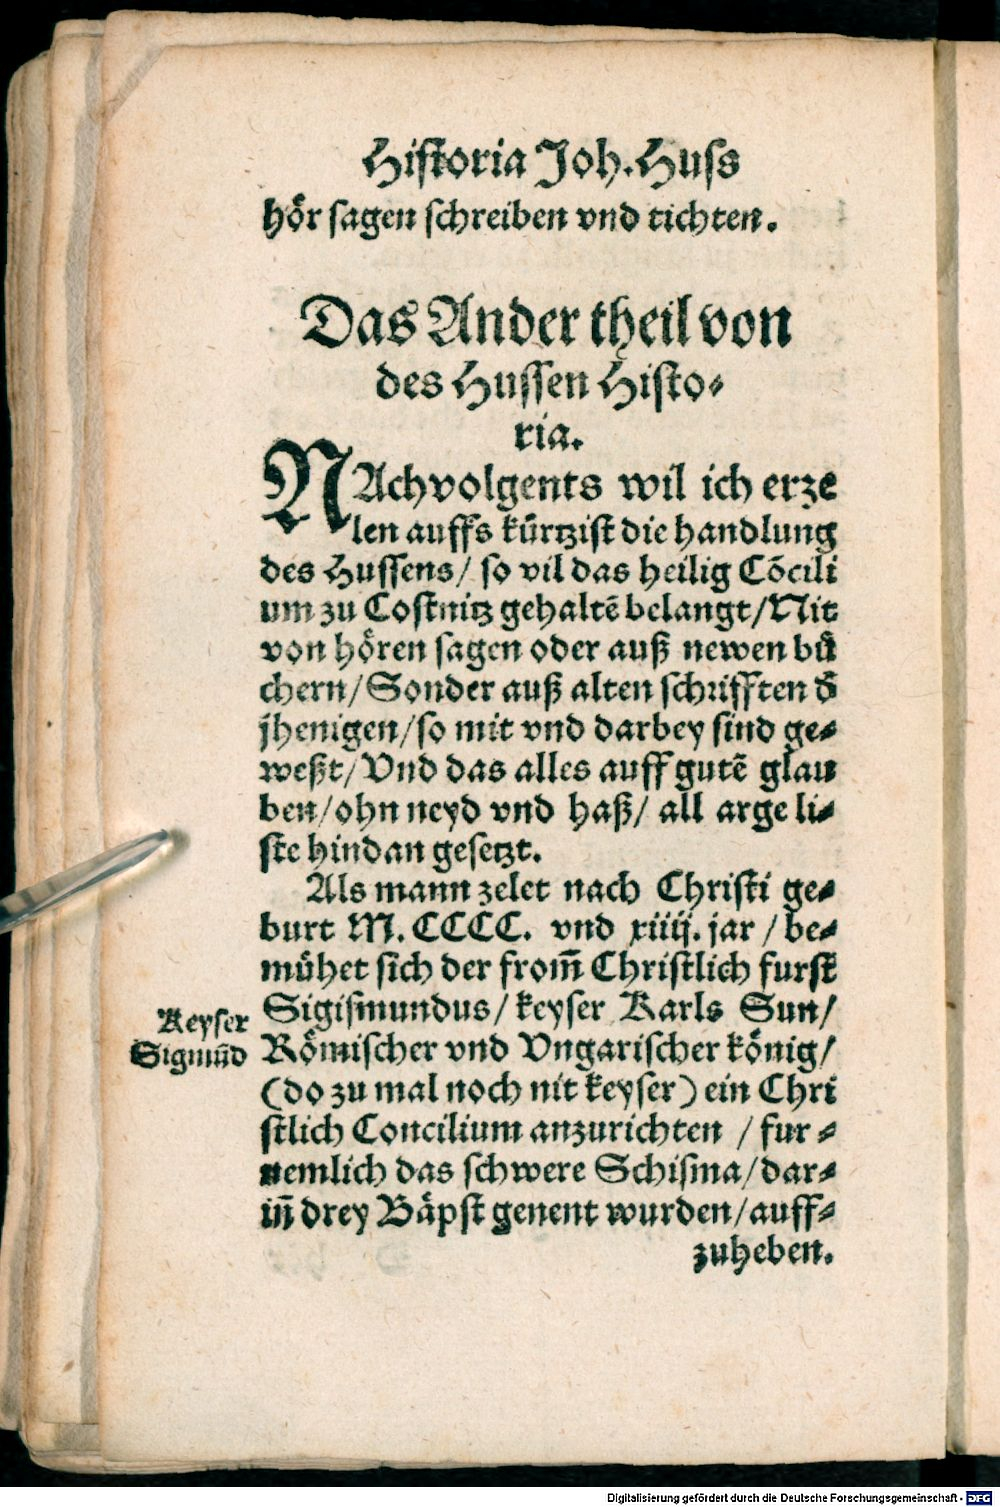 Historia Joh. Huss
hör sagen schreiben vnd tichten.
Das Ander theil von
des Hussen Histo⸗
ria.
NAchvolgents wil ich erze
len auffs kürtzist die handlung
des Hussens/ so vil das heilig Cõcili
um zu Costnitz gehaltẽ belangt/Nit
von hören sagen oder auß newen bü
chern/Sonder auß alten schrifften d̃
jhenigen/so mit vnd darbey sind ge⸗
weßt/Vnd das alles auff gutẽ glau
ben/ohn neyd vnd haß/ all arge li⸗
ste hindan gesetzt.
Als mann zelet nach Christi ge⸗
burt M. CCCC. vnd xiiij. jar / be⸗
mühet sich der from̃ Christlich furst
Sigismundus/ keyser Karls Sun/
Keyser
Sigmũd
Römischer vnd Vngarischer könig/
(do zu mal noch nit keyser) ein Chri
stlich Concilium anzurichten / fur⸗
nemlich das schwere Schisma/dar⸗
iñ drey Bäpst genent wurden/auff⸗
zuheben.
Digitalisierung gefördert durch die Deutsche Forschungsgemeinschaft - DFG